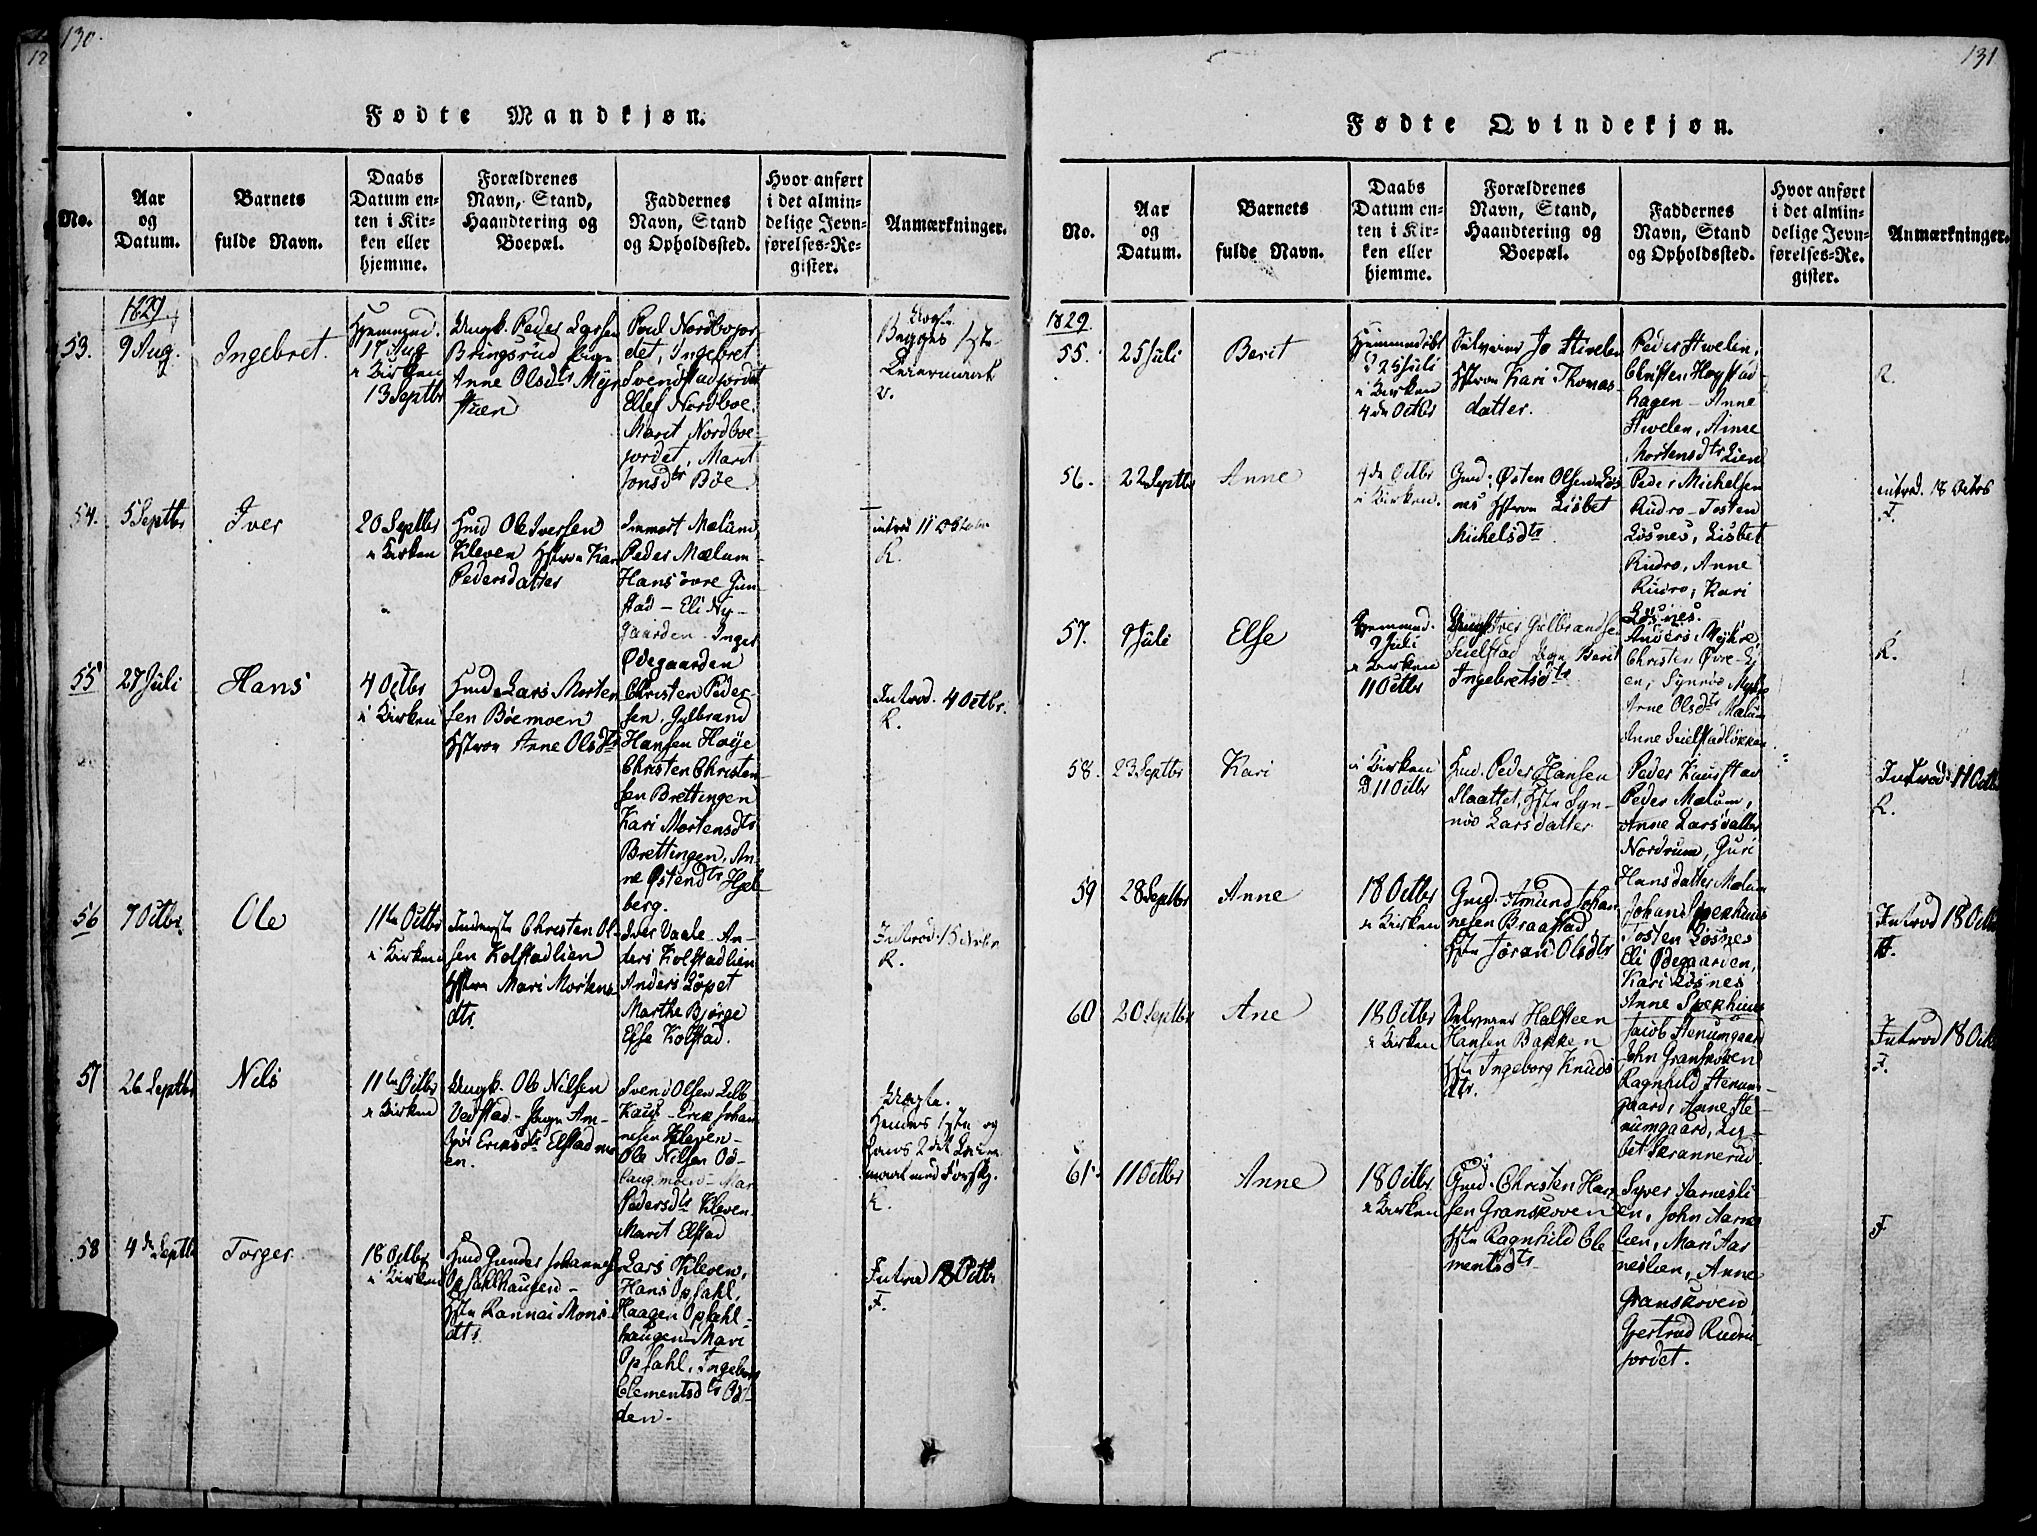 130.
Fødte Mandkjøn.
No.
Aar
og
Datum.
Barnets
fulde Navn.
Daabs
Datum en-
ten i Kir-
ken eller
hjemme.
Forældrenes
Navn, Stand,
Haandtering og
Boepæl.
Faddernes
Navn, Stand
og Opholdssted.
Hvor anført
i det almin-
delige Jevn-
førelses-Re-
gister.
Anmærkninger.
1829
53.
9 Aug.
Ingebret.
Hjemmed.
17 Aug
i Kirken
13 Septbr
Ungk. Peder
Bringsrud Pige
Anne Olsdtr Myr
stuen
Poul Nordboejor
det, Ingebret
Svendstadjordet
Ellef Nordboe.
Marit Nordboe-
jordet, Marit
Jonsdtr Böe
Uægte
Begges 1ste
Leiermaal
54.
5 Septbr
Iver
20 Septbr
i Kirken
Gmd Ole Iversen
Kleven Hstroe Kari
Pedersdatter
Mælum
Peder Mælum-
Hans övre Gun-
stad - Eli Ny-
gaarden - Inger
Ødegaarden
introd 11 October
K.
55
27 Juli
Hans
4 Octbr
i Kirken
Lars Morten
sen Böemoen
Hstroe Anne Olsdtr
Christen Peder-
sen, Gulbrand
Hansen Hoÿe
Christen Christen
sen Brettingen
Kari Mortensdtr
Brettingen, An-
ne Østendtr
berg.
Introd. 4 Octbr.
K.
56
7 Octbr.
Ole
11te Octbr
i Kirken
Inderste Christen Ol-
sen Kolstadlien
Hstroe Mari Mortens
dtr.
Iver Vaale - An-
ders Kolstadlien
Anders Löpet
Marthe Bjørge
Else Kolstad.
K.
57
26 Septbr
Nils
11te Octbr
i Kirken
Ungk. Ole Nilsen
Vedstad - Pigen
Ericsdtr Elstad
en.
Svend Olsen
Erik Johan
nesen Kleven-
Ole Nilsen Od-
Pedersdtr Kleven
Marit Elstad
Uægte.
Hendes 1ste og
hans 2det Leier
maal med
K.
58
4de Septbr
Torger
18 Octbr
i Kirken
Gmd Gunder Johannes
Opsahlhaugen -
Hstr Rannei Mons
dtr
Lars Kleven,
Hans Opsahl,
Haagen Opsahl-
haugen Mari
Opsahl, Ingeborg
Clementsdtr
den.
Introd 18 Octbr
F.
131
Fødte Qvindekjøn.
No.
Aar
og
Datum.
Barnets
fulde Navn.
Daabs
Datum en-
ten i Kir-
ken eller
hjemme.
Forældrenes
Navn, Stand,
Haandtering og
Boepæl.
Faddernes
Navn, Stand
og Opholdssted.
Hvor anført
i det almin-
delige Jevn-
førelses-Re-
gister.
Anmærkninger.
1829.
55.
25 Juli
Berit
Hjemmedöbt
D 25 Juli
i Kirken
4de Octbr
Jo Stivelen
Hstroe Kari Thomas-
datter.
Peder Stivelen,
Christen
hagen - Anne
Stivelen, Anne
Mortensdtr Lien
56.
22 Septbr
Anne
4de Octbr
i Kirken.
Gmd: Østen Olsen Løs
nes Hstroe Lisbet
Michelsdtr
Peder Michelsen
Rudro - Tosten
Løsnes, Lisbet
Rudro, Anne
Rudro, Kari
Løsnes.
introd. 18 Octbr
F.
57.
9 Juli
Else
Hjemmed.
9 Juli
i Kirken
11 Octbr
Gulbrandsen
Seielstad Pige Berit
Ingebretsdtr
Anders Mÿhre
Christen Øvre-Li
en, Synnöv Myhre
Anne Olsdtr Mælum
Anne Seielstadløkken
K.
58.
23 Septbr
Kari
i Kirken
D 11 Octbr
Gmd. Peder Hansen
Slaattet, Hstr Syn-
növ Larsdatter
Peder
Peder Mælum,
Anne Larsdatter
Nordrum, Guri
Hansdatter Mælum
Introd: 11 Octbr
K.
59
28 Septbr
Anne
18 Octbr
i Kirken
Gmd. Amund Johan
nesen Braastad
Hstr Jöran Olsdtr
Johans
Tosten Løsnes
Eli Ødegaarden,
Kari Løsnes
Anne
Introd 18 Octbr
F.
60
20 Septbr
Ane
18 Octbr
i Kirken
Halsteen
Hansen Bakken
Hstr Ingeborg Knuds
dtr.
Jacob Stenumgaard
John Granskoven
Ragnhild Stenum-
gaard, Anne Ste-
numgaard, Lis-
bet Skrannerud.
Introd 18 Octbr
F.
61.
11 Octbr
Anne
18 Octbr
i Kirken
Gmd. Christen Han
sen Granskoven
Hstr Ragnhild Cle
mentsdtr
Syver Aarnesli
en, John Aarnes
lien, Mari Aar
neslien, Anne
Granskoven
Gjertrud
jordet.
F